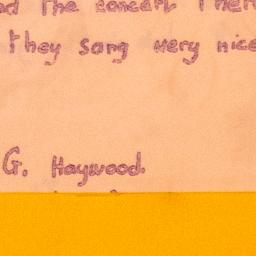 nd the concert There
they sang very nice
G. Haywood.